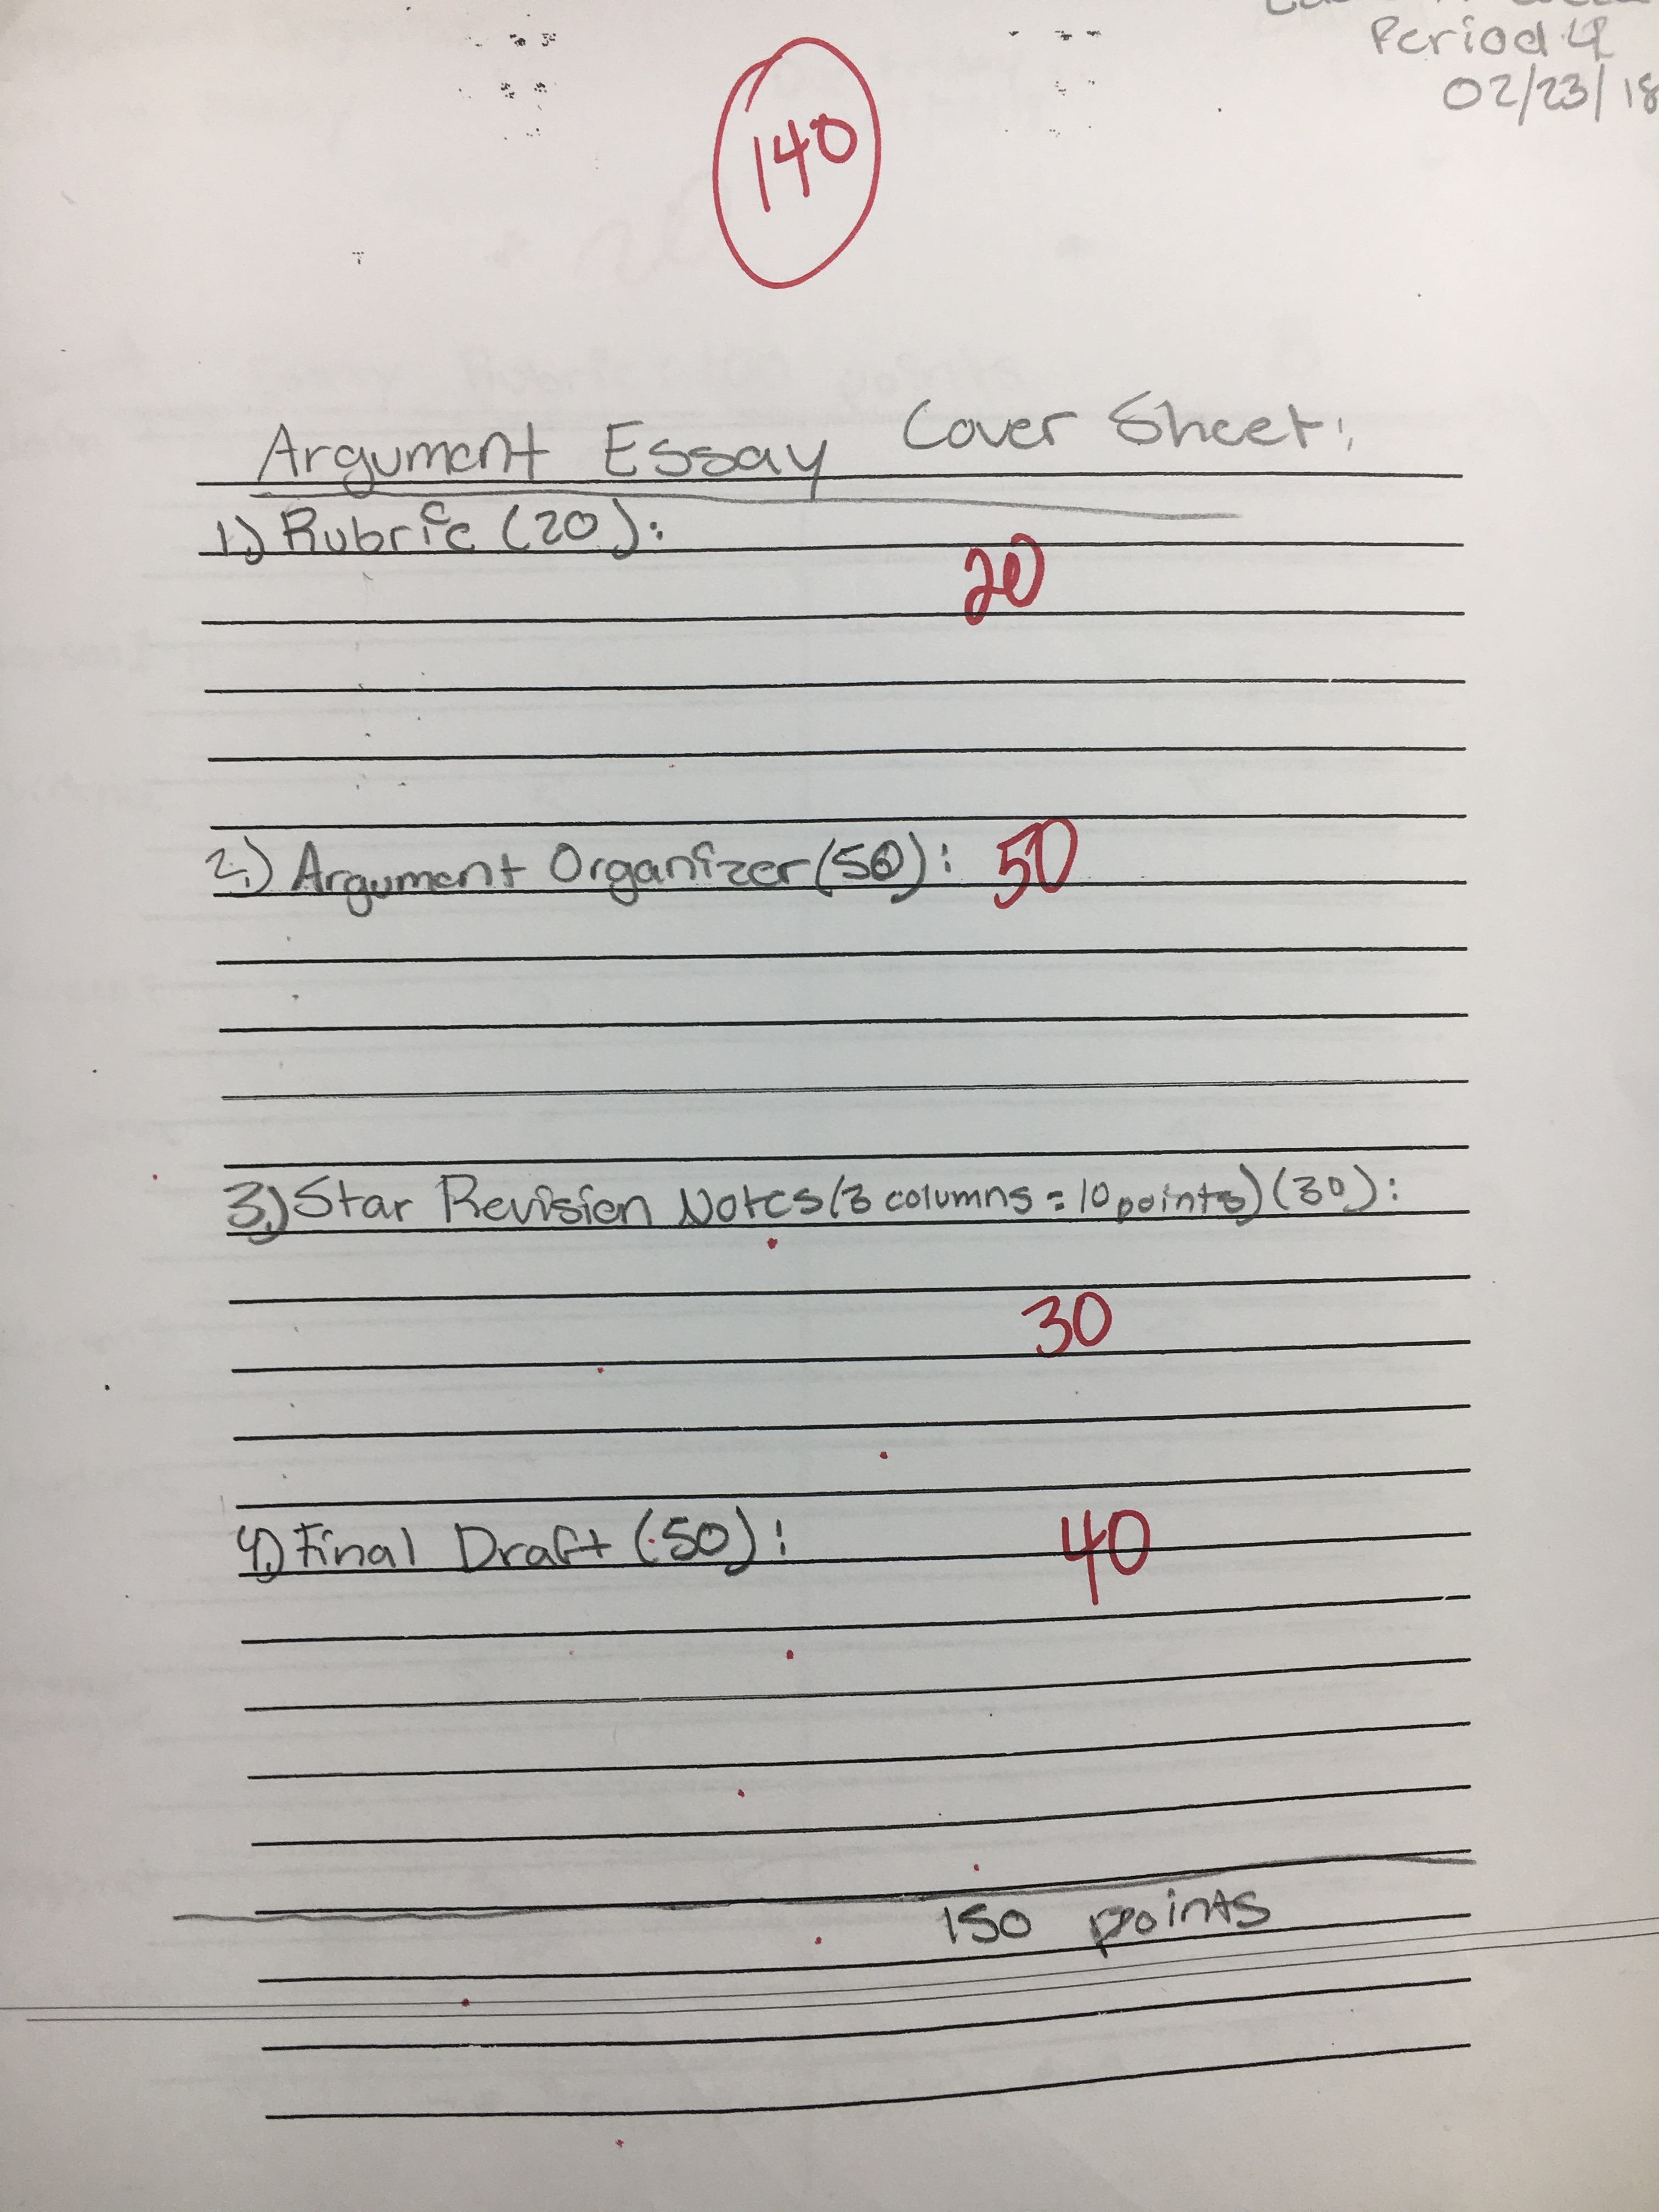 Period 4
02/23/18
140
Argument Essay Cover Sheet:
1.) Rubric (20):
20
2.) Argument Organizer (50): 50
3.) Star Revision Notes (3 columns = 10 points) (30):
30
4.) Final Draft (50): 40
150 points